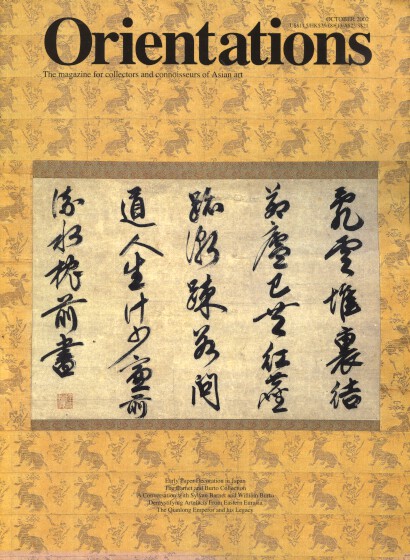 OCTOBER 2002
Orientations
The magazine for collectors and connoisseurs of Asian art
乱雲堆裏結
茆廬已共紅塵
跡漸疎若問
道人生計少窓前
流水枕前書
Early Paper Decoration in Japan
The Barnet and Burto Collection
A Conversation with Sylvan Barnet and William Burto
Demystifying Artefacts From Eastern Eurasia
The Qianlong Emperor and his Legacy